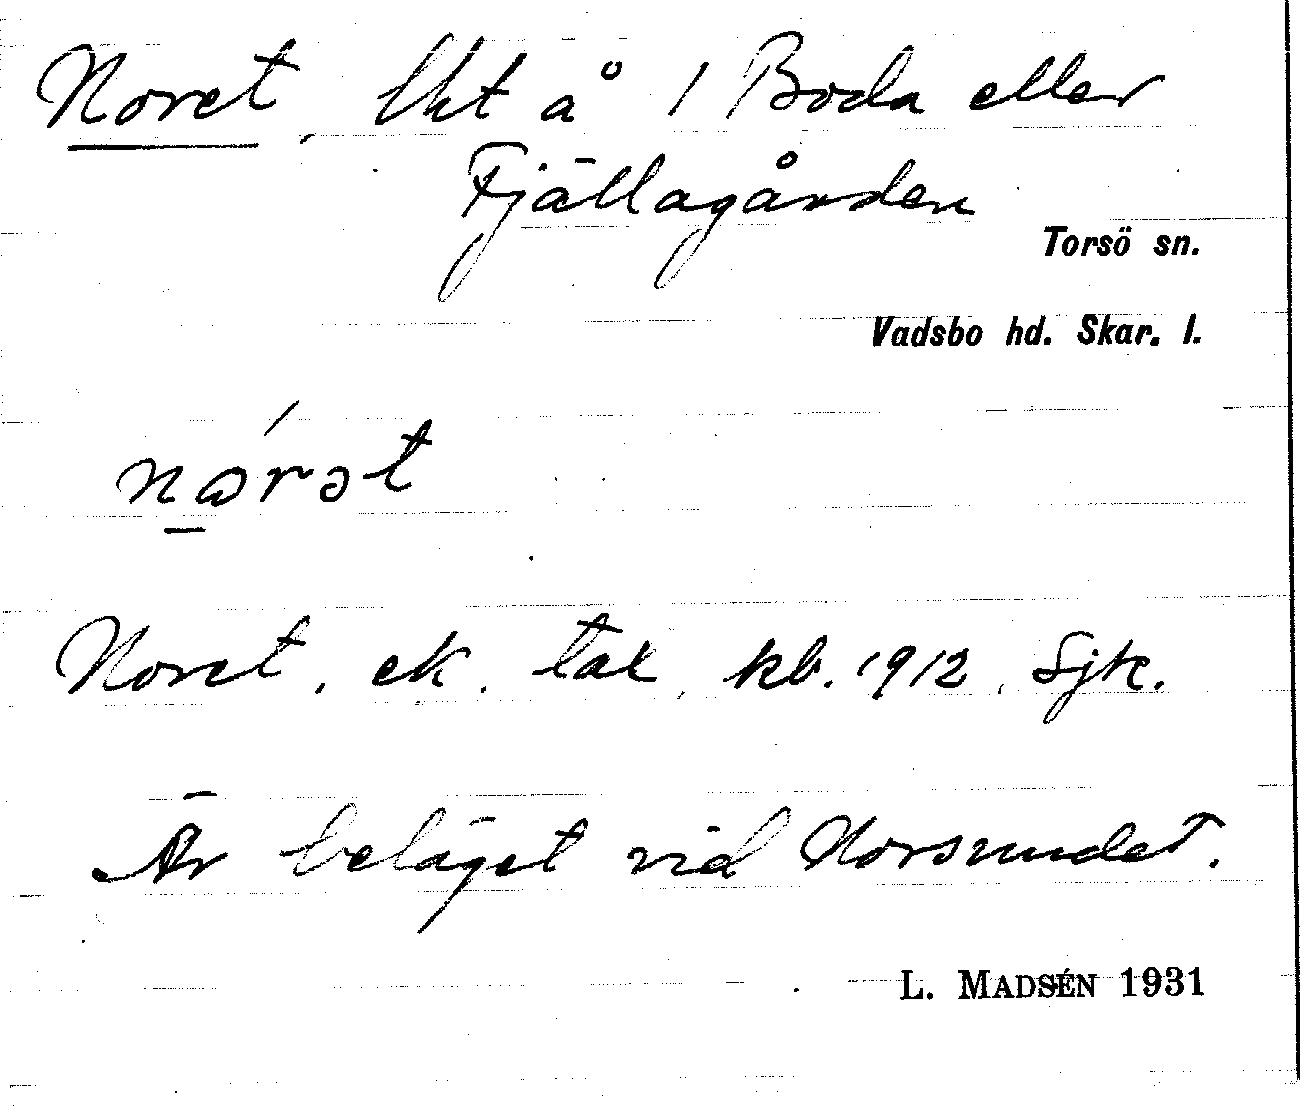 Noret, lht å 1 Boda eller
Fjällagården
Torsö sn.
Vadsbo hd. Skar. l.
nɷ́rət
Noret, ek. , kb. 1912, Sjk.
Är beläget vid Norsundet.
L. MADSÉN 1931